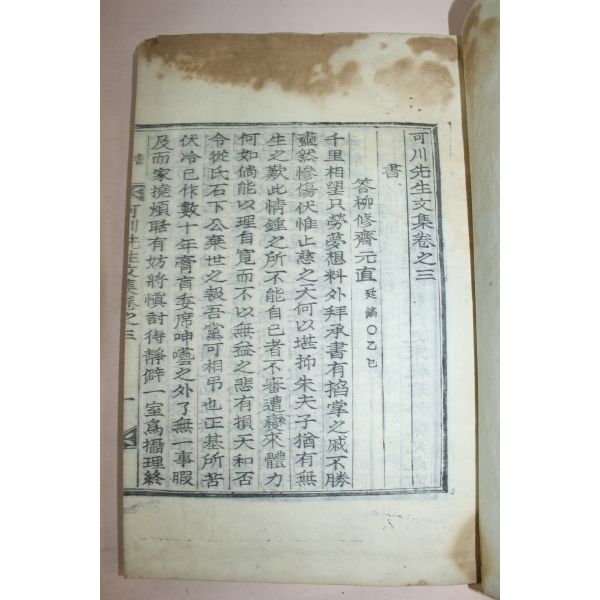 可川先生文集卷之三
書
答柳修齋元直 廷鎬○乙巳
千里相望只勞夢想料外拜承書有掐掌之戚不勝
盡然慘傷伏惟止慈之天何以堪抑朱夫子猶有無
生之歎此情鍾之所不能自已者不審遭變來體力
何如倘能以理自寬而不以無益之悲有損天和否
令從氏石下公棄世之報吾黨可相吊也正基所苦
伏冷已作數十年膏肓委席呻囈之外了無一事暇
及而家撓煩聒有妨將愼討得靜僻一室爲攝理終
書
可川先生文集卷之三
一